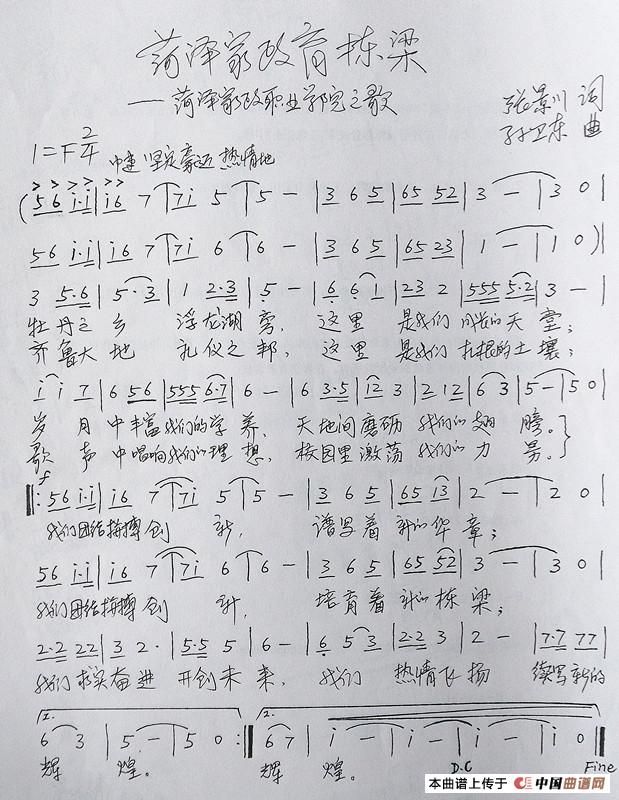 菏泽家政育栋梁
——菏泽家政职业学院之歌
张景川 词
孙卫东 曲
1=F 2/4 中速 坚定豪迈 热情地
(56 i·i | i6 7 | 7i 5 | 5 — | 3 6 5 | 65 52 | 3 — | 3 0 |
56 i·i | i6 7 | 7i 6 | 6 — | 3 6 5 | 65 23 | 1 — | 1 0 )|
3 5·6 | 5·3 | 1 2·3 | 5 — | 6 6 1 | 23 2 | 555 5·2 | 3 — |
牡丹之乡 浮龙湖旁, 这里 是我们 成长的天堂;
齐鲁大地 礼仪之邦, 这里 是我们 扎根的土壤;
i i 7 | 6 56 | 555 6·7 | 6 — | 6 3·5 | 12 3 | 2 12 | 6 3 | 5 — | 5 0 |
岁月 中丰富我们的学养, 天地间磨砺 我们的翅膀。
歌声 中唱响我们的理想, 校园里激荡 我们的力量。
f
56 i·i | i6 7 | 7i 5 | 5 — | 3 6 5 | 65 13 | 2 — | 2 0 |
我们团结拼搏创新, 谱写着 新的华章;
56 i·i | i6 7 | 7i 6 | 6 — | 3 6 5 | 65 52 | 3 — | 3 0 |
我们团结拼搏创新, 培育着 新的栋梁;
2·2 22 | 3 2· | 5·5 5 | 6 — | 6 5 3 | 2·2 3 | 2 — | 7·7 77 |
我们求实奋进 开创未来, 我们 热情飞扬 续写新的
6 3 | 5 — | 5 0 :| 2. 6 7 | i — | i — | i — | i 0 ‖
辉煌。 辉煌。 D.C Fine
本曲谱上传于 中国曲谱网